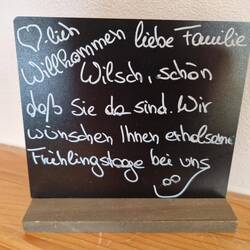 ♡lich
Willkommen liebe Familie
Wilsch, schön
daß Sie da sind. Wir
wünschen Ihnen erholsame
Frühlingstage bei uns